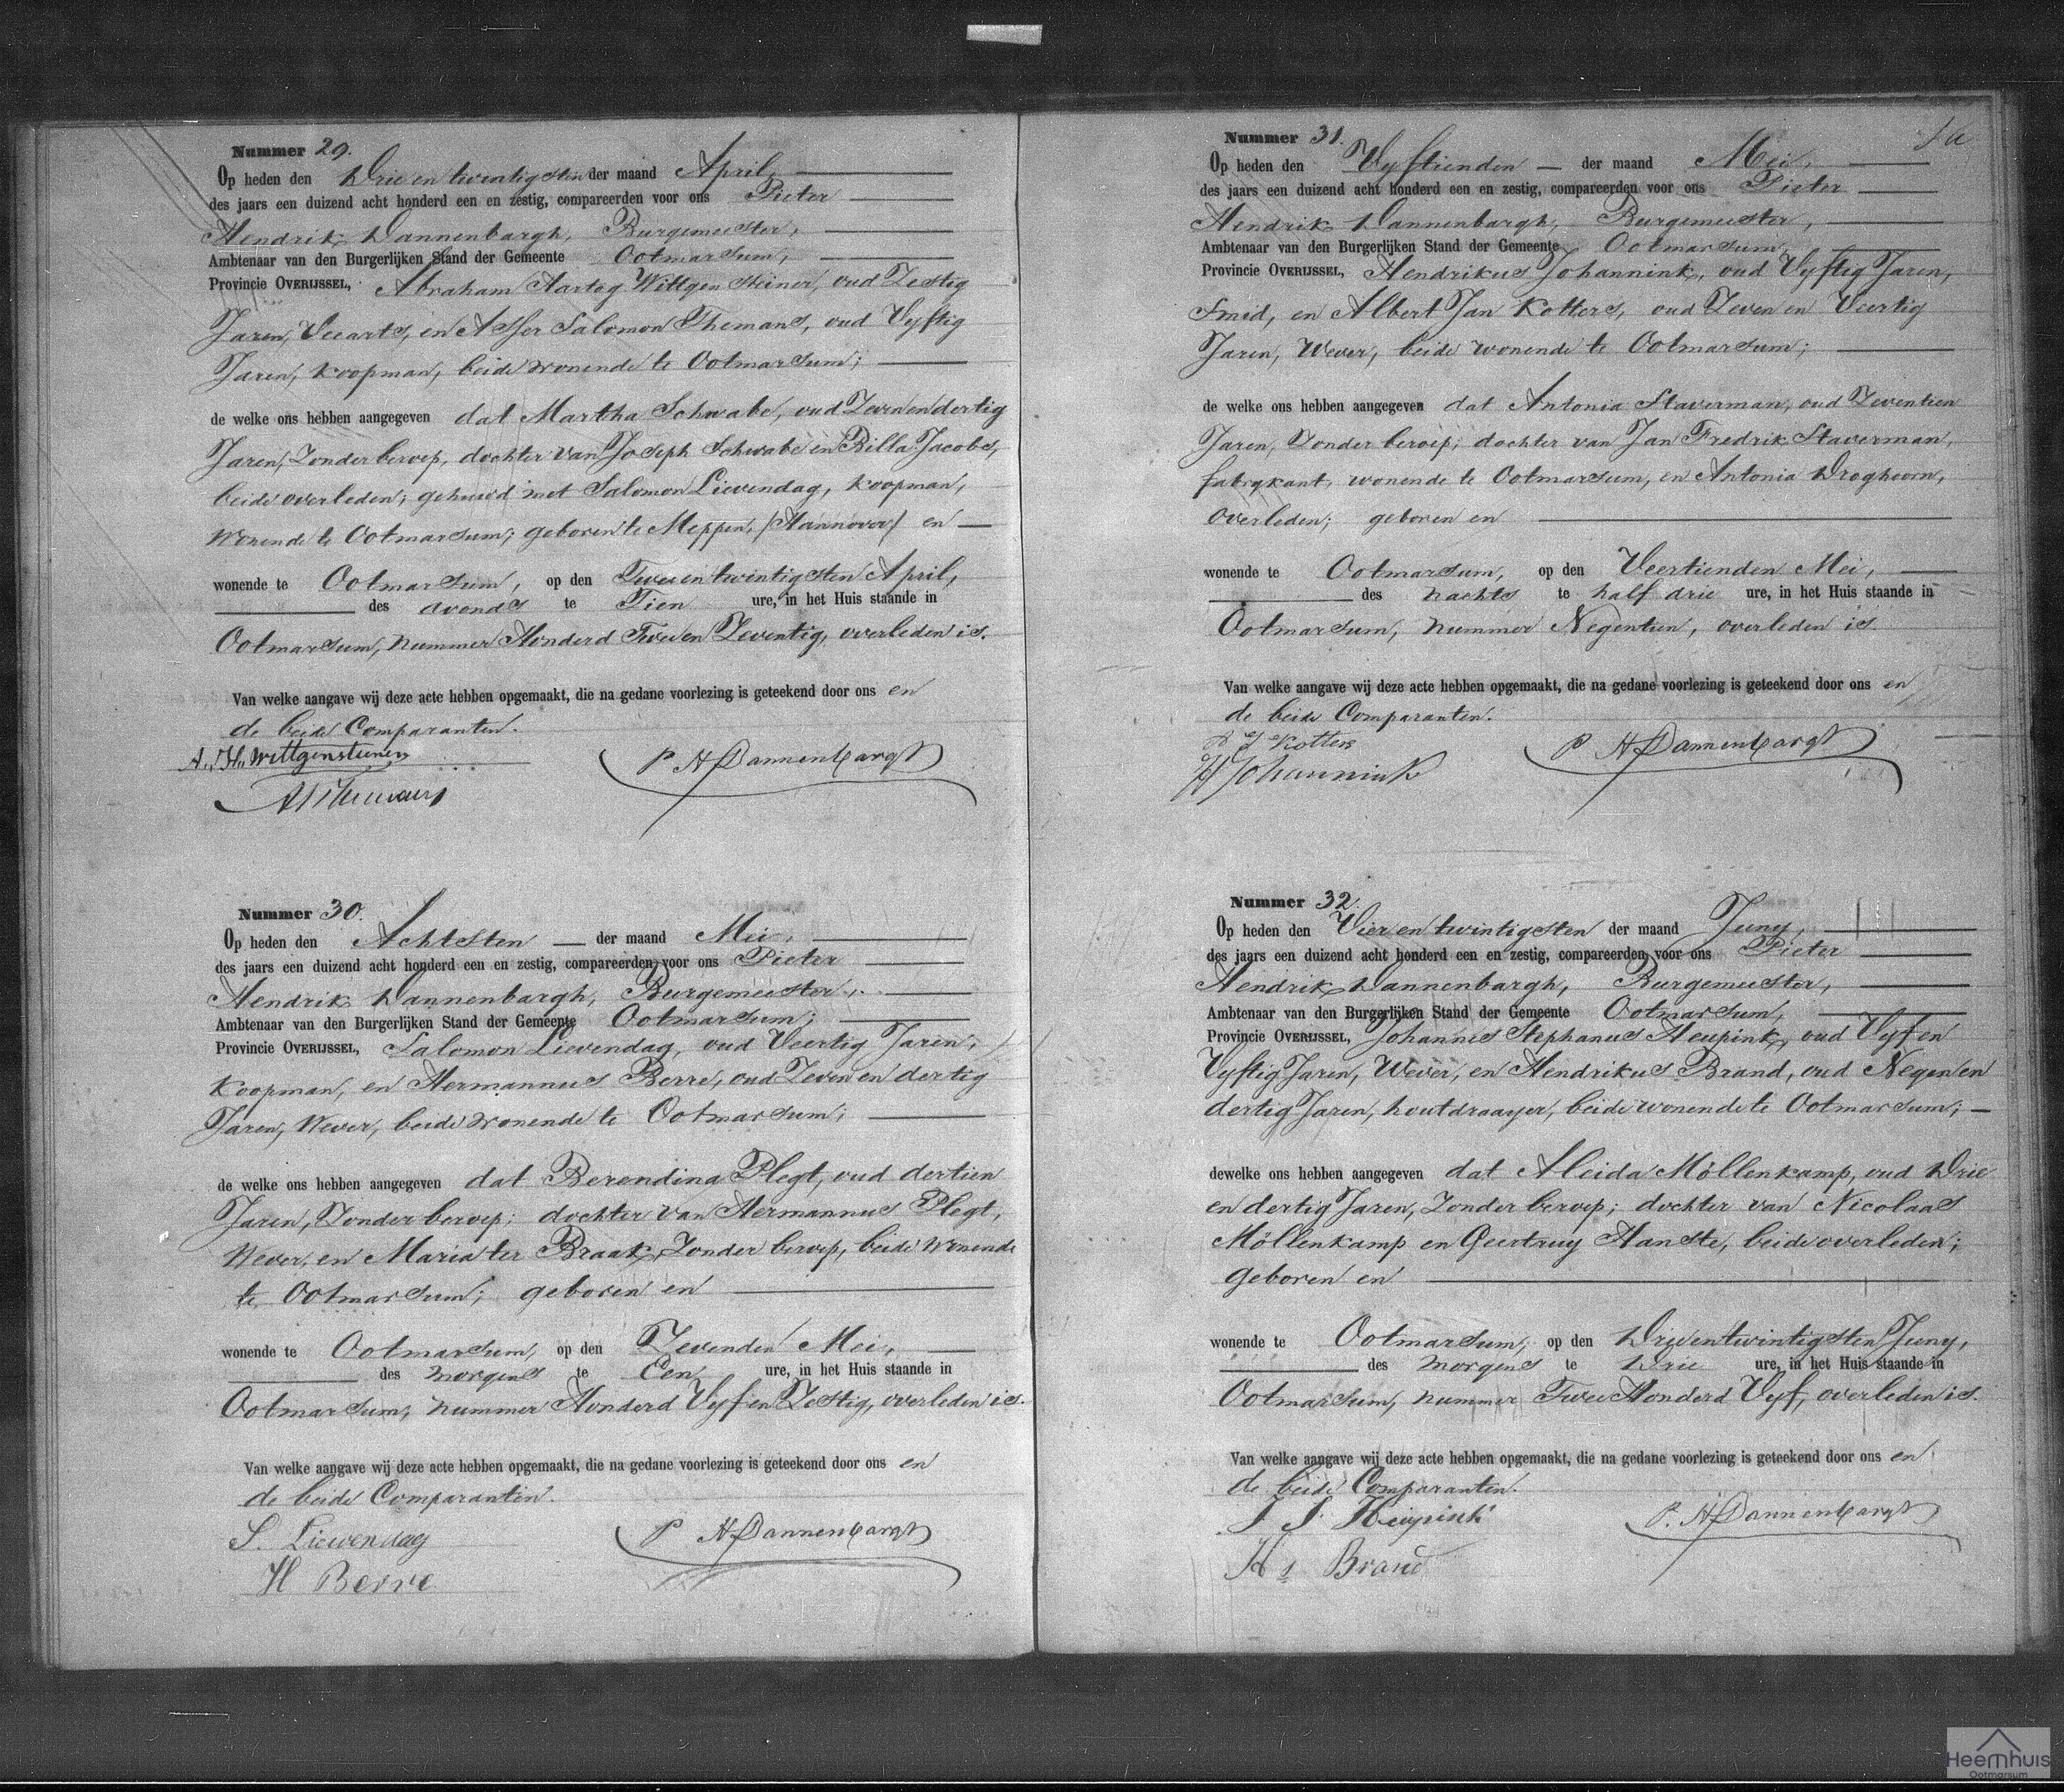 Nummer 29.
Op heden den Drie en twintigsten der maand April,
des jaars een duizend acht honderd een en zestig, compareerden voor ons Pieter
Hendrik Dannenbargh, Burgemeester,
Ambtenaar van den Burgerlijken Stand der Gemeente Ootmarsum,
Provincie OVERIJSSEL, Abraham Hartog Wittgensteiner, oud Zestig
Jaren, Veearts, en Asser Salomon Themans, oud Vyftig
Jaren, koopman, beide wonende te Ootmarsum;
de welke ons hebben aangegeven dat Martha Schwabe, oud Zeven en dertig
Jaren, Zonder beroep, dochter van Joseph Schwabe en Billa Jacobs,
beide overleden; gehuwd met Salomon Lievendag, koopman,
wonende te Ootmarsum; geboren te Meppen, (Hannover) en
wonende te Ootmarsum, op den Twee en twintigsten April,
des avonds te Tien ure, in het Huis staande in
Ootmarsum, nummer Honderd Twee en Zeventig, overleden is.
Van welke aangave wij deze acte hebben opgemaakt, die na gedane voorlezing is geteekend door ons en
de beide Comparanten.
A. H. Wittgensteiner
P H Dannenbargh
A S Themans
Nummer 30.
Op heden den Achtsten der maand Mei,
des jaars een duizend acht honderd een en zestig, compareerden voor ons Pieter
Hendrik Dannenbargh, Burgemeester,
Ambtenaar van den Burgerlijken Stand der Gemeente Ootmarsum;
Provincie OVERIJSSEL, Salomon Lievendag, oud Veertig Jaren,
koopman, en Hermannus Berre, oud Zeven en dertig
Jaren, Wever, beide wonende te Ootmarsum;
de welke ons hebben aangegeven dat Berendina Plegt, oud dertien
Jaren, Zonder beroep; dochter van Hermannus Plegt,
Wever, en Maria ter Braak, Zonder beroep, beide wonende
te Ootmarsum; geboren en
wonende te Ootmarsum, op den Zevenden Mei,
des morgens te Een ure, in het Huis staande in
Ootmarsum, nummer Honderd Vyf en Zestig, overleden is.
Van welke aangave wij deze acte hebben opgemaakt, die na gedane voorlezing is geteekend door ons en
de beide Comparanten.
S. Liewendag
P H Dannenbargh
H Berre
Nummer 31.
Op heden den Vyftienden der maand Mei,
des jaars een duizend acht honderd een en zestig, compareerden voor ons Pieter
Hendrik Dannenbargh, Burgemeester,
Ambtenaar van den Burgerlijken Stand der Gemeente Ootmarsum,
Provincie OVERIJSSEL, Hendrikus Johannink, oud Vyftig Jaren,
Smid, en Albert Jan Kotters, oud Zeven en Veertig
Jaren, Wever, beide wonende te Ootmarsum;
de welke ons hebben aangegeven dat Antonia Staverman, oud Zeventien
Jaren, Zonder beroep; dochter van Jan Fredrik Staverman,
fabrykant, wonende te Ootmarsum, en Antonia Droghoorn,
overleden; geboren en
wonende te Ootmarsum, op den Veertienden Mei,
des nachts te half drie ure, in het Huis staande in
Ootmarsum, nummer Negentien, overleden is.
Van welke aangave wij deze acte hebben opgemaakt, die na gedane voorlezing is geteekend door ons en
de beide Comparanten.
A J Kotters
P H Dannenbargh
H Johannink
Nummer 32.
Op heden den Vier en twintigsten der maand Juny,
des jaars een duizend acht honderd een en zestig, compareerden voor ons Pieter
Hendrik Dannenbargh, Burgemeester,
Ambtenaar van den Burgerlijken Stand der Gemeente Ootmarsum,
Provincie OVERIJSSEL, Johannes Stephanus Heupink, oud Vyf en
Vyftig Jaren, Wever, en Hendrikus Brand, oud Negen en
dertig Jaren, houtdraayer, beide wonende te Ootmarsum;
dewelke ons hebben aangegeven dat Aleida Möllenkamp, oud Drie
en dertig Jaren, Zonder beroep; dochter van Nicolaas
Möllenkamp en Geertruy Hanste, beide overleden;
geboren en
wonende te Ootmarsum, op den Drie en twintigsten Juny,
des morgens te Drie ure, in het Huis staande in
Ootmarsum, nummer Twee Honderd Vyf, overleden is.
Van welke aangave wij deze acte hebben opgemaakt, die na gedane voorlezing is geteekend door ons en
de beide Comparanten.
J S Heupink
P. H Dannenbargh
Hs Brand
Heemhuis
Ootmarsum